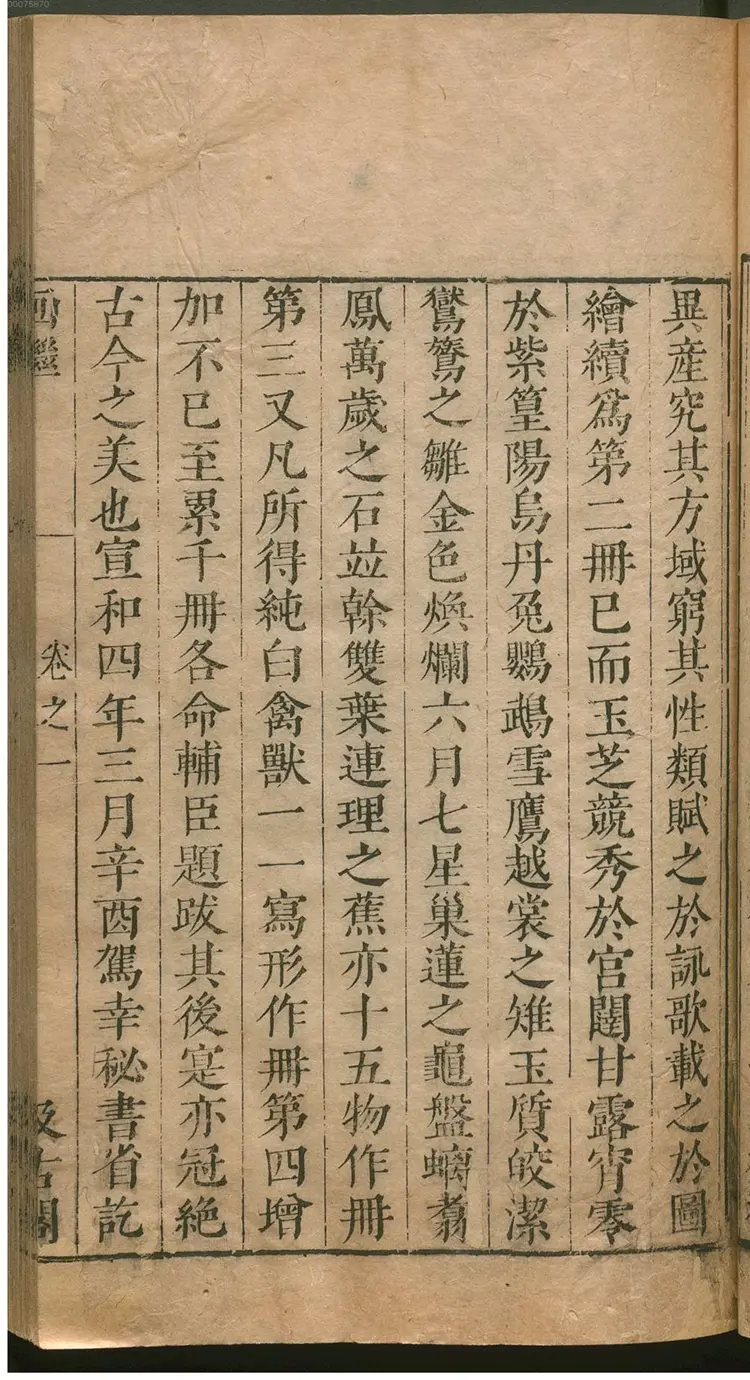 異產究其方域窮其性類賦之於詠歌載之於圖
繪續爲第二冊已而玉芝競秀於宮闥甘露宵零
於紫篁陽烏丹兔鸚鵡雪鷹越裳之雉玉質皎潔
鸑鷟之雛金色煥爛六月七星巢蓮之龜盤螭翥
鳳萬歲之石竝榦雙葉連理之蕉亦十五物作冊
第三又凡所得純白禽獸一一寫形作冊第四增
加不已至累千冊各命輔臣題跋其後寔亦冠絶
古今之美也宣和四年三月辛酉駕幸秘書省訖
画繼
卷之一
汲古閣
00075870